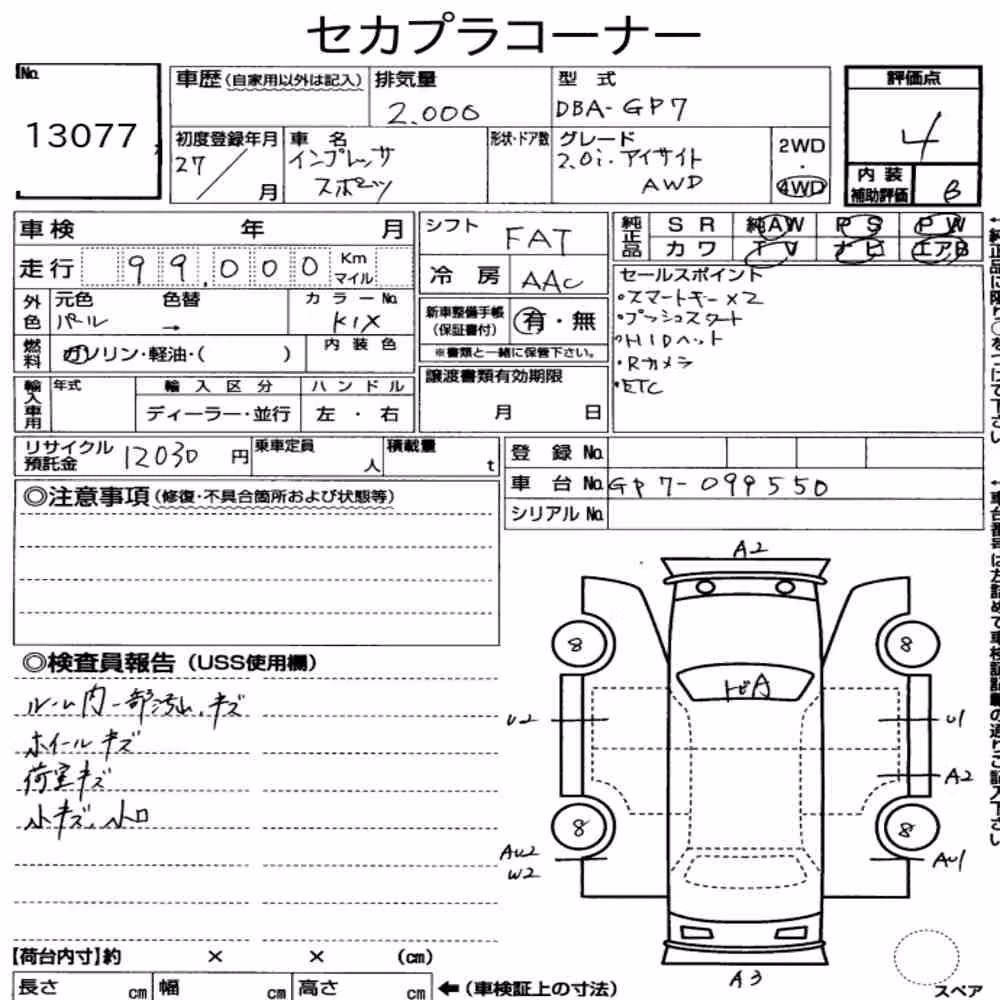 セカプラコーナー
No.
13077
車歴(自家用以外は記入)
排気量
2.000
型 式
DBA-GP7
初度登録年月
27/ 月
車 名
インプレッサ
スポーツ
形状・ドア数
グレード
2.0i.アイサイト
AWD
2WD
・
4WD
評価点
4
内装
補助評価
B
車検 年 月
走行 99,000 Km
マイル
外色
元色
パール
色替
→
カラーNo.
K1X
燃料
ガソリン・軽油・( )
内装色
輸入車用
年式
輸入区分
ディーラー・並行
ハンドル
左・右
シフト
FAT
冷房
AAC
新車整備手帳
(保証書付)
有・無
※書類と一緒に保管下さい。
譲渡書類有効期限
月 日
純正品
SR 純AW PS PW
カワ TV ナビ エアB
セールスポイント
・スマートキー×2
・プッシュスタート
・HIDヘット
・Rカメラ
・ETC
←純正品に限り○をつけて下さい
リサイクル
預託金
12030 円
乗車定員
人
積載量
t
登録No.
車台No. GP7-099550
シリアルNo.
←車台番号は左詰めで車検証記載の通りご記入下さい
◎注意事項(修復・不具合箇所および状態等)
◎検査員報告(USS使用欄)
ルーム内一部汚れ、キズ
ホイールキズ
荷室キズ
小キズ、小凹
A2
8
8
トビA
U2
U1
A2
8
8
AU2
W2
AU1
A3
スペア
【荷台内寸】約 × × (cm)
長さ cm 幅 cm 高さ cm ←(車検証上の寸法)